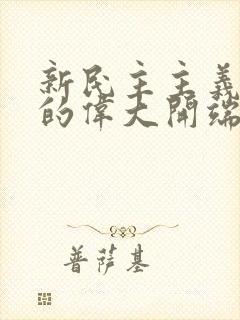 新民主主義
的偉大開端
普薩基